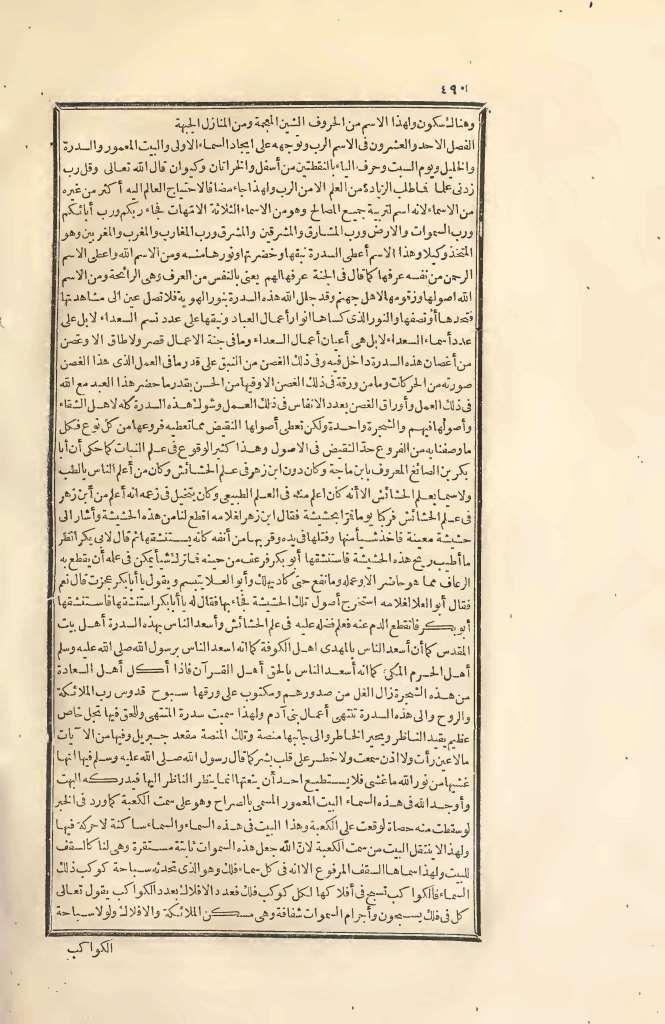 ٤٩٠١
وهنالك سكون ولهذا الاسم من الحروف الشين المعجمة ومن المنازل الجبهة
الفصل الاحد والعشرون فى الاسم الرب وتوجهه على ايجاد السماء الاولى والبيت المعمور والسدرة
والخليل ويوم السبت وحرف الياء بالنقطتين من أسفل والخراتان وكيوان قال الله تعالى وقل رب
زدنى علما فما طلب الزيادة من العلم الا من الرب ولهذا جاء مضافا لاحتياج العالم اليه أكثر من غيره
من الاسماء لانه اسم لتربية جميع المصالح وهو من الاسماء الثلاثة الامهات فجاء ربكم ورب آبائكم
ورب السموات والارض ورب المشارق والمشرقين والمشرق ورب المغارب والمغرب والمغربين وهو
المتخذ وكيلا وهذا الاسم أعطى السدرة نبقها وخضرتها ونورها منه ومن الاسم الله وأعطى الاسم
الرحمن من نفسه عرفها كما قال فى الجنة عرفها لهم يعنى بالنفس من العرف وهى الرائحة ومن الاسم
الله اصولها وزقومها لاهل جهنم وقد جلل الله هذه السدرة بنور الهوية فلا تصل عين الى مشاهدتها
فتحدها أو تصفها والنور الذى كساها انوار أعمال العباد ونبقها على عدد نسم السعداء لا بل على
عدد أسماء السعداء لا بل هى أعيان أعمال السعداء وما فى جنة الاعمال قصر ولا طاق الا وغصن
من أغصان هذه السدرة داخل فيه وفى ذلك الغصن من النبق على قدر ما فى العمل الذى هذا الغصن
صورته من الحركات وما من ورقة فى ذلك الغصن الا وفيها من الحسن بقدر ما حضر هذا العبد مع الله
فى ذلك العمل وأوراق الغصن بعدد الانفاس فى ذلك العمل وشوك هذه السدرة كله لاهل الشقاء
وأصولها فيهم والشجرة واحدة ولكن تعطى أصولها النقيض مما تعطيه فروعها من كل نوع فكل
ما وصفنا به من الفروع خذ النقيض فى الاصول وهذا كثير الوقوع فى علم النبات كما حكى أن أبا
بكر بن الصائغ المعروف بابن ماجة وكان دون ابن زهر فى علم الحشائش وكان من أعلم الناس بالطب
ولا سيما بعلم الحشائش الا أنه كان اعلم منه فى العلم الطبيعى وكان يتخيل فى زعمه انه أعلم من ابن زهر
فى علم الحشائش فركبا يوما فمرا بحشيشة فقال ابن زهر لغلامه اقطع لنا من هذه الحشيشة وأشار الى
حشيشة معينة فاخذ شيأ منها وفتلها فى يده وقربها من أنفه كأنه يستنشقها ثم قال لابى بكر انظر
ما أطيب ريح هذه الحشيشة فاستنشقها أبو بكر فرعف من حينه فما ترك شيأ يمكن فى علمه أن يقطع به
الرعاف مما هو حاضر الا وعمله وما نفع حتى كاد يهلك وأبو العلا يتبسم ويقول يا أبا بكر عجزت قال نعم
فقال أبو العلا لغلامه استخرج أصول تلك الحشيشة فجاء بها فقال له يا أبا بكر استنشقها فاستنشقها
أبو بكر فانقطع الدم عنه فعلم فضله عليه فى علم الحشائش وأسعد الناس بهذه السدرة أهل بيت
المقدس كما أن أسعد الناس بالمهدى اهل الكوفة كما انه اسعد الناس برسول الله صلى الله عليه وسلم
أهل الحرم المكى كما انه أسعد الناس بالحق أهل القرآن فاذا أكل أهل السعادة
من هذه الشجرة زال الغل من صدورهم ومكتوب على ورقها سبوح قدوس رب الملائكة
والروح والى هذه السدرة تنتهى أعمال بنى آدم ولهذا سميت سدرة المنتهى وللحق فيها تجل خاص
عظيم يقيد الناظر ويحير الخاطر والى جانبها منصة وتلك المنصة مقعد جبريل وفيها من الآيات
ما لا عين رأت ولا اذن سمعت ولا خطر على قلب بشر كما قال رسول الله صلى الله عليه وسلم فيها انها
غشيها من نور الله ما غشى فلا يستطيع احد أن ينعتها انما ينظر الناظر اليها فيدركه البهت
وأوجد الله فى هذه السماء البيت المعمور المسمى بالضراح وهو على سمت الكعبة كما ورد فى الخبر
لو سقطت منه حصاة لوقعت على الكعبة وهذا البيت فى هذه السماء والسماء ساكنة لا حركة فيها
ولهذا لا ينتقل البيت من سمت الكعبة لانّ الله جعل هذه السموات ثابتة مستقرة وهى لنا كالسقف
للبيت ولهذا سماها السقف المرفوع الا انه فى كل سماء فلك وهو الذى تحدثه سباحة كوكب ذلك
السماء فالكواكب تسبح فى أفلاكها لكل كوكب فلك فعدد الافلاك بعدد الكواكب يقول تعالى
كل فى فلك يسبحون وأجرام السموات شفافة وهى مسكن الملائكة والافلاك ولولا سباحة
الكواكب